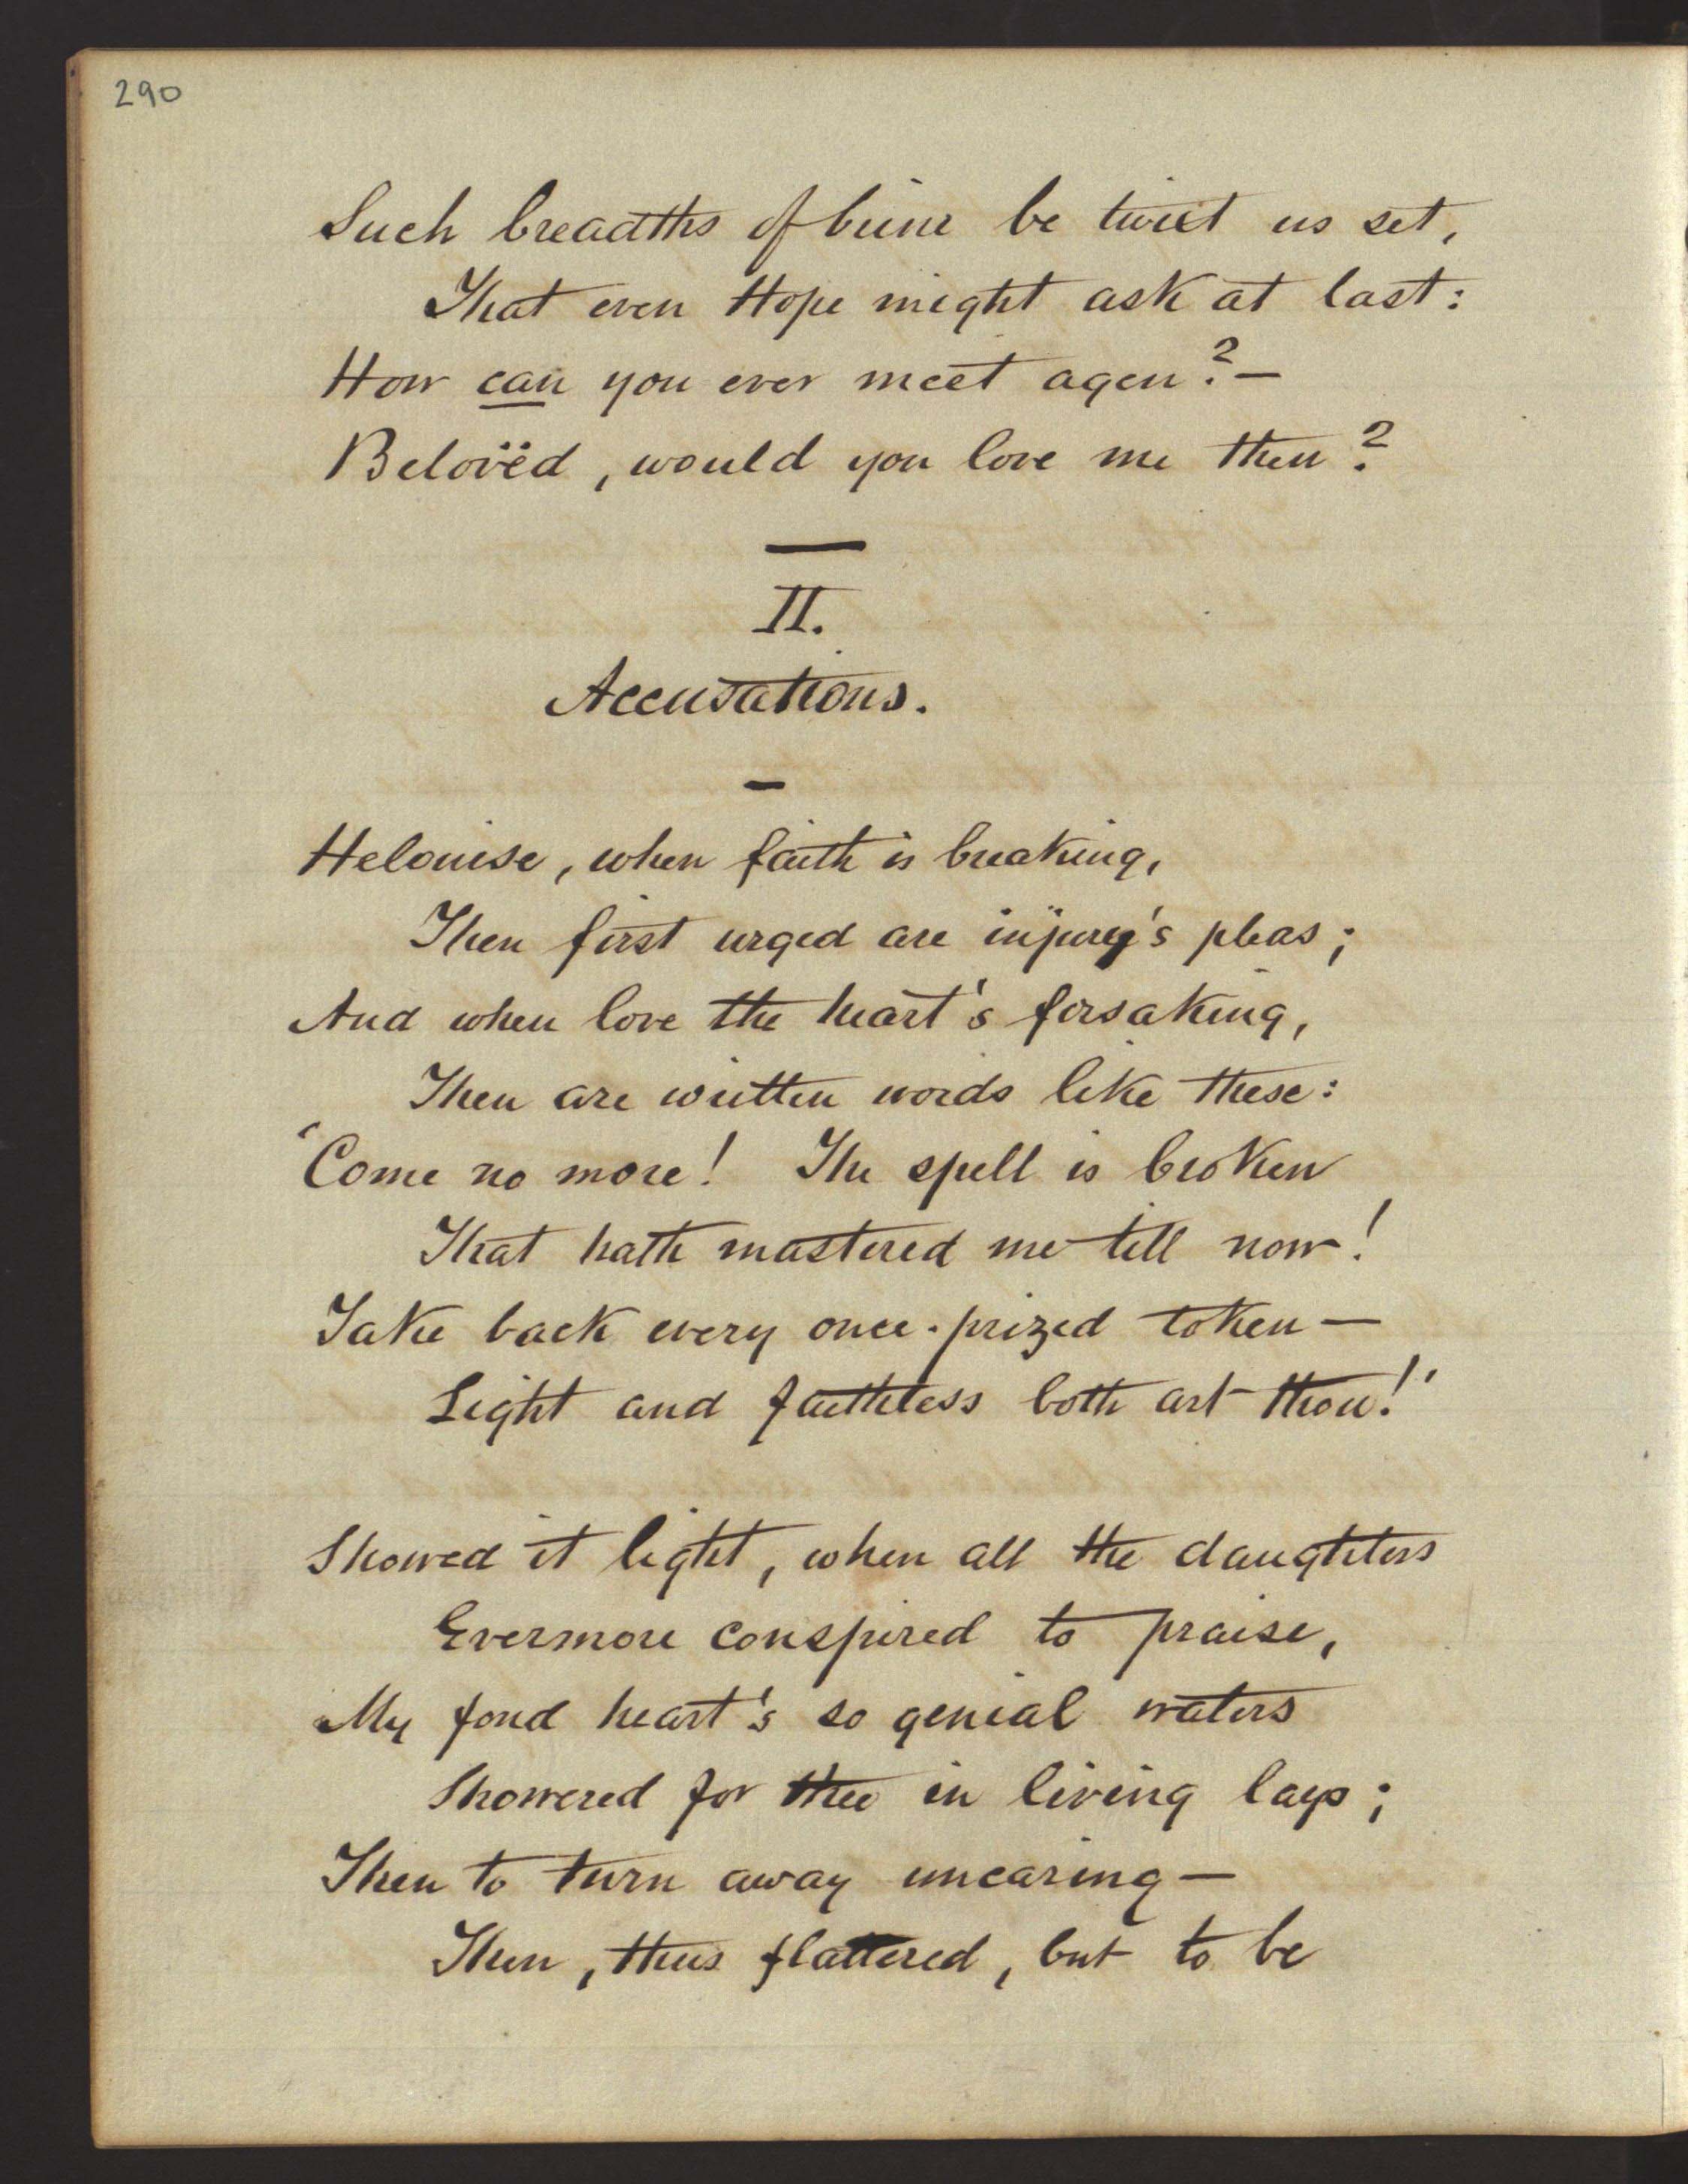 290
Such breadths of brine be twixt us set,
That even Hope might ask at last:
How can you ever meet agen?—
Belovëd, would you love me then?
II.
Accusations.
Helouise, when faith is breaking,
Then first urged are injury's pleas;
And when love the heart's forsaking,
Then are written words like these:
'Come no more! The spell is broken
That hath mastered me till now!
Take back every once-prized token—
Light and faithless both art thou!'
Showed it light, when all the daughters
Evermore conspired to praise,
My fond heart's so genial waters
Showered for thee in living lays;
Then to turn away uncaring—
Then, thus flattered, but to be